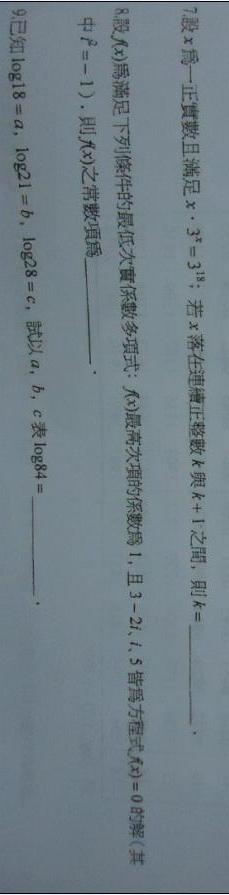 7.設 x 為一正實數且滿足 x · 3ˣ = 3¹⁸；若 x 落在連續正整數 k 與 k + 1 之間，則 k = ______．
8.設 f(x)為滿足下列條件的最低次實係數多項式：f(x)最高次項的係數為 1，且 3 − 2i、i、5 皆為方程式 f(x) = 0 的解（其
中 i² = − 1），則 f(x)之常數項為______．
9.已知 log18 = a，log21 = b，log28 = c，試以 a，b，c 表 log84 = ______．